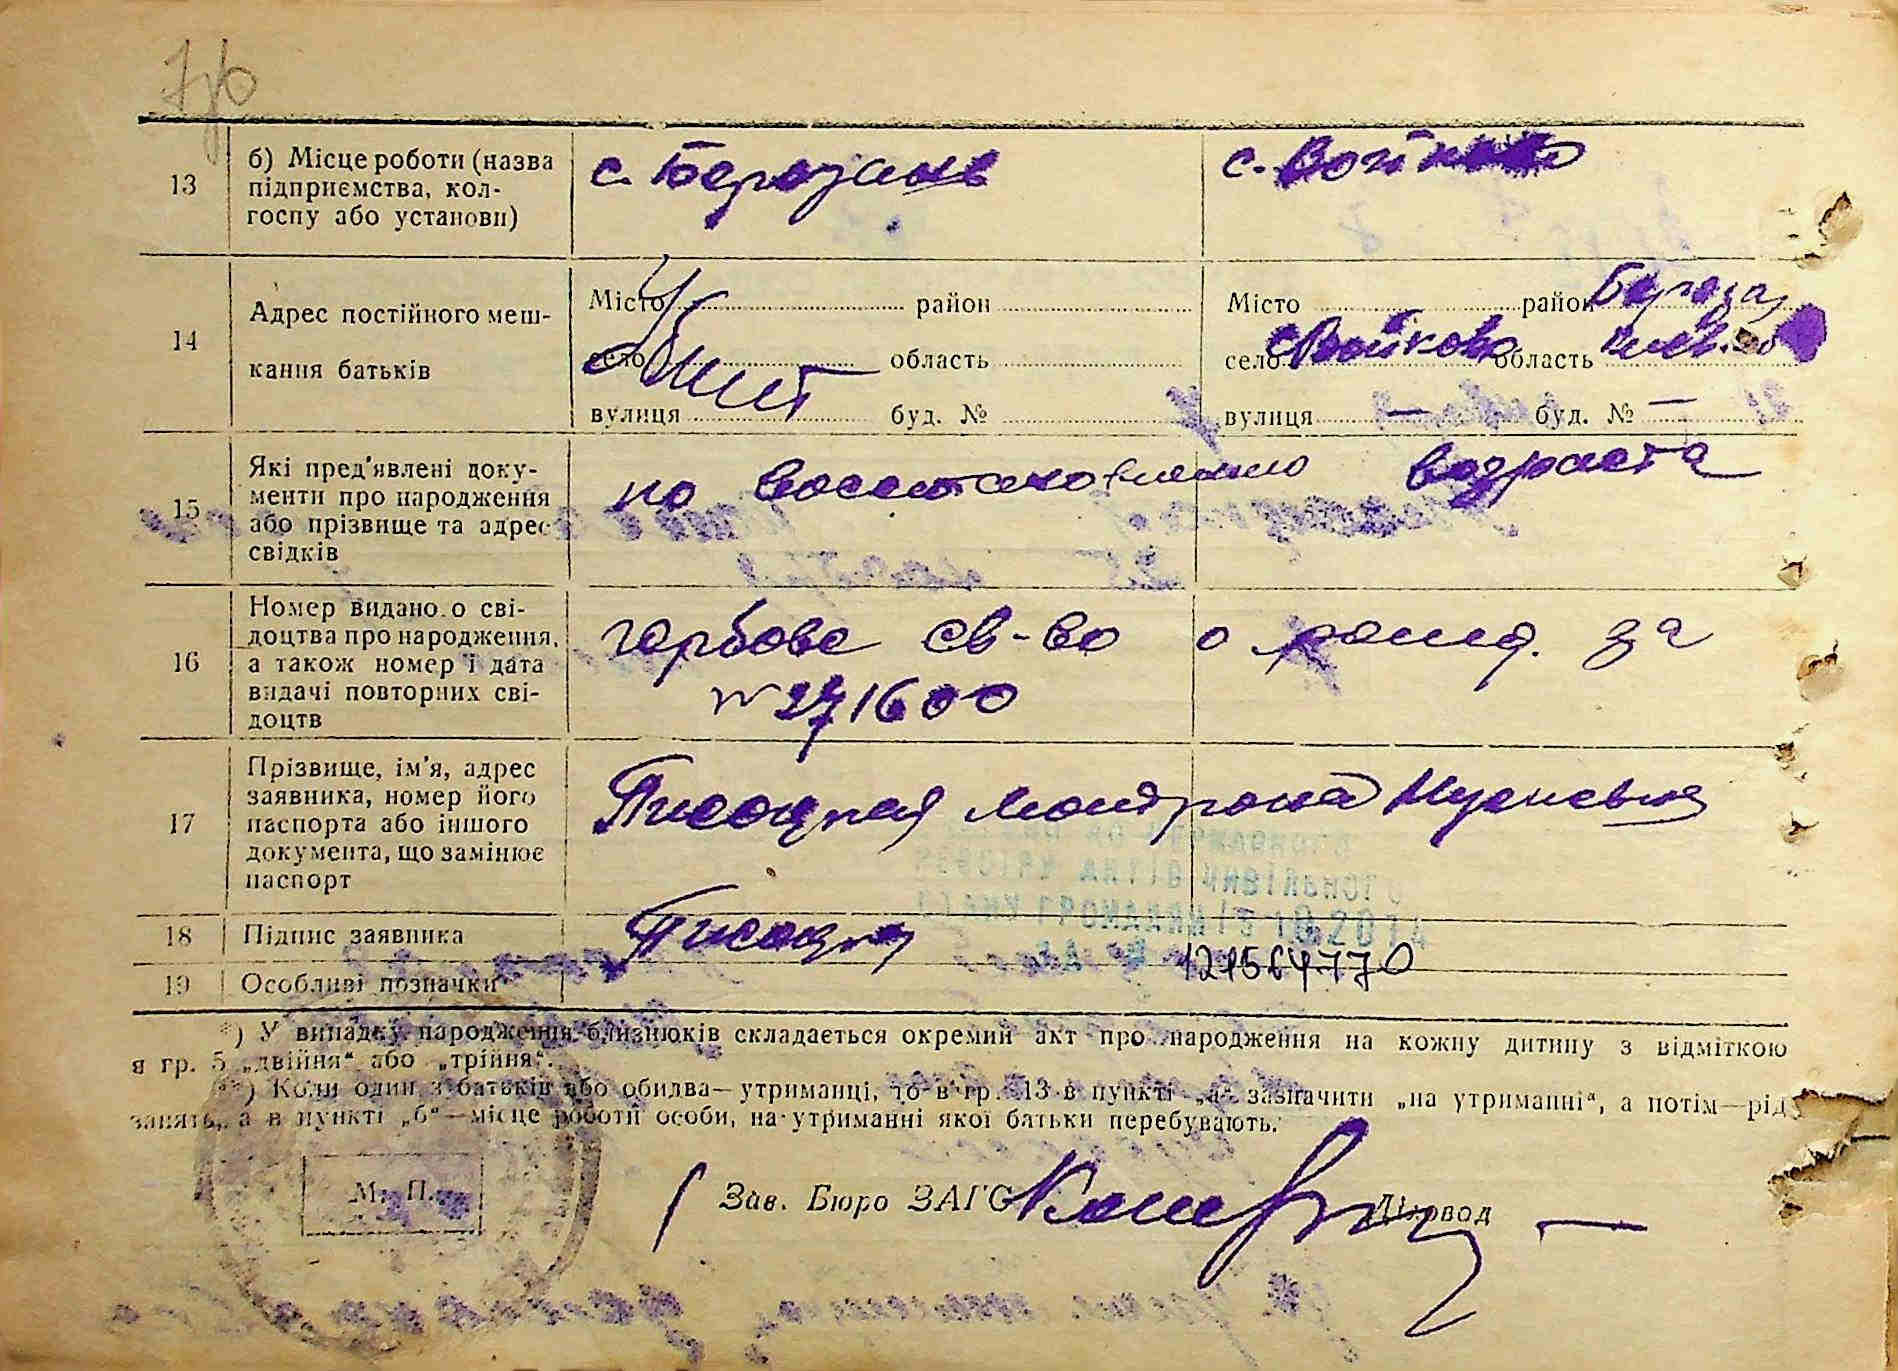 13
б) Місце роботи (назва
підприємства, кол-
госпу або установи)
с. Березань
с. Войково
14
Адрес постійного меш-
кання батьків
Місто район
село область
вулиця буд. №
Убит
Місто район Березан
село с Войково область Киев. об
вулиця — буд. № —
15
Які пред'явлені доку-
менти про народження
або прізвище та адрес
свідків
по восстановлению возраста
16
Номер видано.о сві-
доцтва про народження,
а також номер і дата
видачі повторних сві-
доцтв
гербове св-во о рожд. за
№ 271600
17
Прізвище, ім'я, адрес
заявника, номер його
паспорта або іншого
документа, що замінює
паспорт
Писоцкая
18
Підпис заявника
Писоцка
121564770
19
Особливі позначки
*) У випадку народження близнюків складається окремий акт про народження на кожну дитину з відміткою
в гр. 5 „двійня“ або „трійня“.
**) Коли один з батьків або обидва—утриманці, то в гр. 13 в пункті „а“ зазначити „на утриманні“, а потім—рід
занять, а в пункті „б“—місце роботи особи, на утриманні якої батьки перебувають.
М. П.
Зав. Бюро ЗАГС
Діловод —